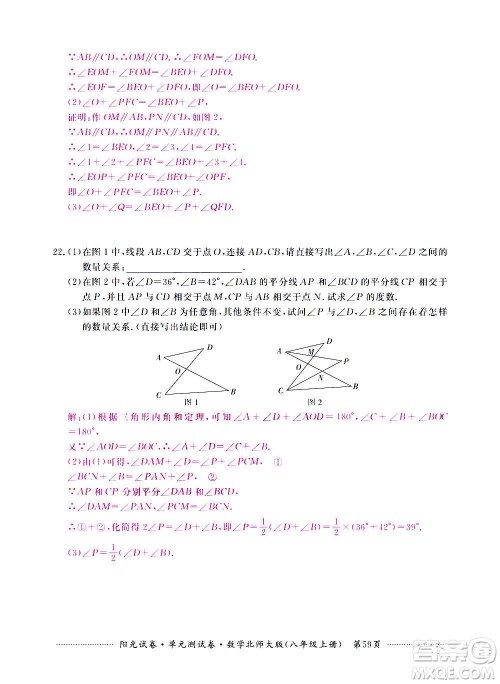 ∵AB∥CD,∴OM∥CD.∴∠FOM=∠DFO.
∴∠EOM+∠FOM=∠BEO+∠DFO.
∴∠EOF=∠BEO+∠DFO.
(2)∠O+∠PFC=∠BEO+∠P,
证明:作OM∥AB,PN∥AB,如图2.
∵AB∥CD,∴OM∥PN∥AB∥CD.
∴∠1=∠BEO,∠2=∠3,∠4=∠PFC.
∴∠1+∠2+∠PFC=∠BEO+∠3+∠4.
即∠O+∠PFC=∠BEO+∠P.
(3)∠O+∠Q=∠BEO+∠P+∠QFD.
22.(1)在图1中,线段AB,CD交于点O,连接AD,CB,请直接写出∠A,∠D,∠B,∠C之间的
数量关系:
(2)在图2中,若∠D=36°,∠B=42°,∠DAB的平分线AP和∠BCD的平分线CP交于
点P,并且AP与CD交于点M,CP与AB交于点N.试求∠P的度数.
(3)如果图2中∠D和∠B为任意角,其他条件不变,试问∠P与∠D,∠B之间存在着怎样
的数量关系.(直接写出结论即可)
D
A
O
C
B
图1
D
A
M
P
O
N
C
B
图2
解:(1)根据三角形内角和定理,可知∠A+∠D+∠AOD=180°,∠B+∠C+∠BOC
=180°.
又∵∠AOD=∠BOC,∴∠A+∠D=∠B+∠C.
(2)由(1)可得,∠DAM+∠D=∠PCM+∠P, ①
∠BCN+∠B=∠PAN+∠P. ②
∵AP和CP分别平分∠DAB和∠BCD,
∴∠DAM=∠PAN,∠PCM=∠BCN.
∴①+②,化简得2∠P=∠D+∠B,即∠P=1/2(∠D+∠B)=1/2×(36°+42°)=39°.
(3)∠P=1/2(∠D+∠B).
阳光试卷·单元测试卷·数学北师大版(八年级上册) 第59页